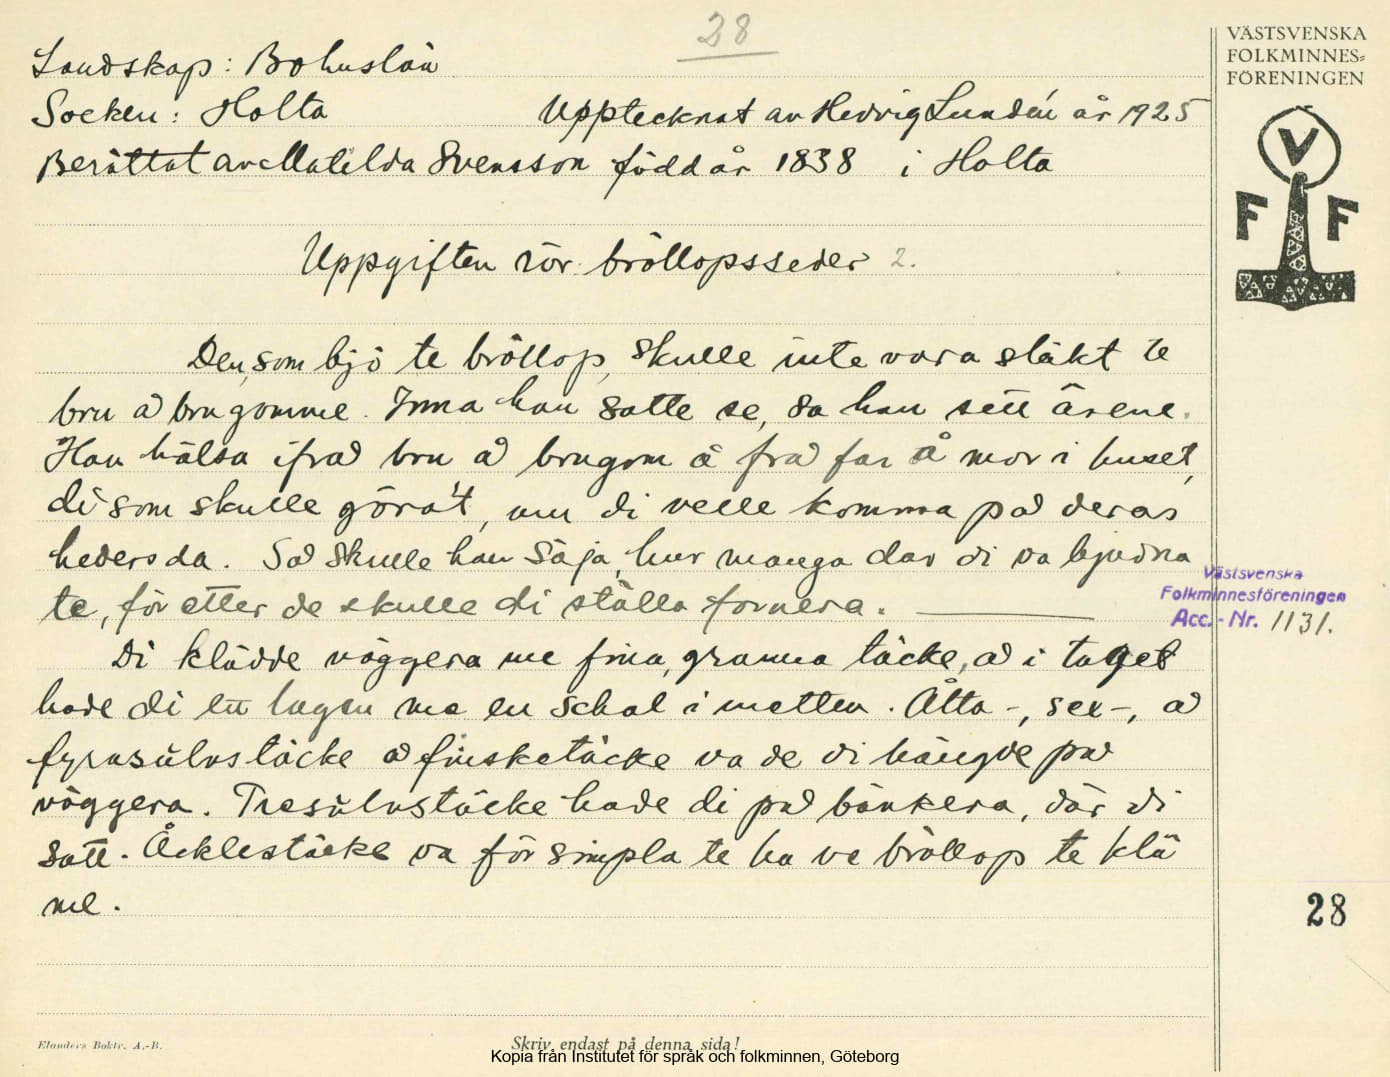 28
VÄSTSVENSKA
FOLKMINNES=
FÖRENINGEN
Landskap: Bohuslän
Socken: Holta Upptecknat av Hedvig Lundén år 1925
Berättat av Matilda Svensson född år 1838 i Holta
V
F F
Uppgiften rör bröllopsseder 2.
Den, som bjö te bröllop, skulle inte vara släkt te
bru å brugomme. Inna han satte se, sa han sett ärene.
Han hälsa ifrå bru å brugom å frå far å mor i huset,
di som skulle göra't, um di velle komma på deras
hedersda. Så skulle han säja, hur manga dar di va bjudna
te, för etter de skulle di ställa fornera.
Västsvenska
Folkminnesföreningen
Acc.-Nr. 1131.
Di klädde väggera me fina, granna täcke, å i taget
hade di ett lagen me en schal i metten. Åtta-, sex-, å
fyrasulvstäcke å finsketäcke va de di hängde på
väggera. Tresulvstäcke hade di på bänkera, där di
satt. Åcklestäcke va för simpla te ha ve bröllop te klä
me.
28
Elanders Boktr. A.-B.
Skriv endast på denna sida!
Kopia från Institutet för språk och folkminnen, Göteborg